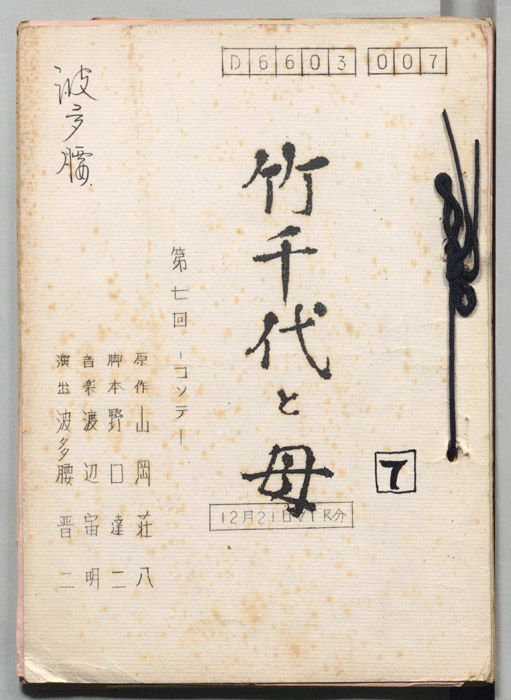 D6603 007
竹千代と母
7
12月21日VTR分
第七回 -コンテ-
原作 山岡荘八
脚本 野口達二
音楽 渡辺宙明
演出 波多腰晋二
波多腰